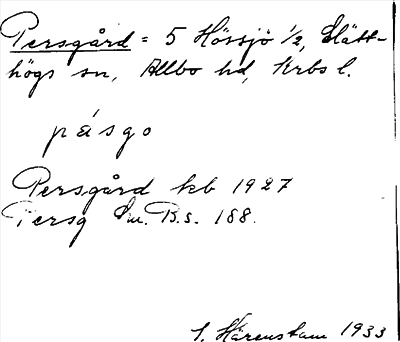 Persgård = 5 Hössjö 1/2, Slätt-
högs sn, Allbo hd, Krbs l.
påsgo
Persgård kb 1927
Persg Sm. B.s. 188.
S. Härenstam 1933